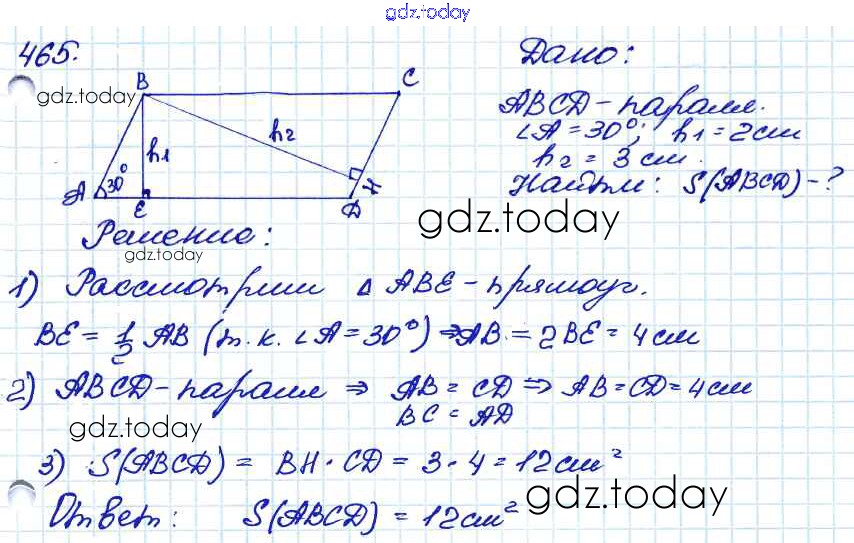 gdz.today
465.
B
C
gdz.today
h1
h2
A
30°
E
D
H
Дано:
ABCD - паралл.
∠A = 30°; h1 = 2см
h2 = 3 см.
Найти: S(ABCD) - ?
gdz.today
Решение:
gdz.today
1) Рассмотрим △ ABE - прямоуг.
BE = 1/2 AB (т.к. ∠A = 30°) ⇒ AB = 2BE = 4см
2) ABCD - паралл ⇒ AB = CD ⇒ AB = CD = 4см
BC = AD
gdz.today
3) S(ABCD) = BH · CD = 3 · 4 = 12см²
gdz.today
Ответ: S(ABCD) = 12см²